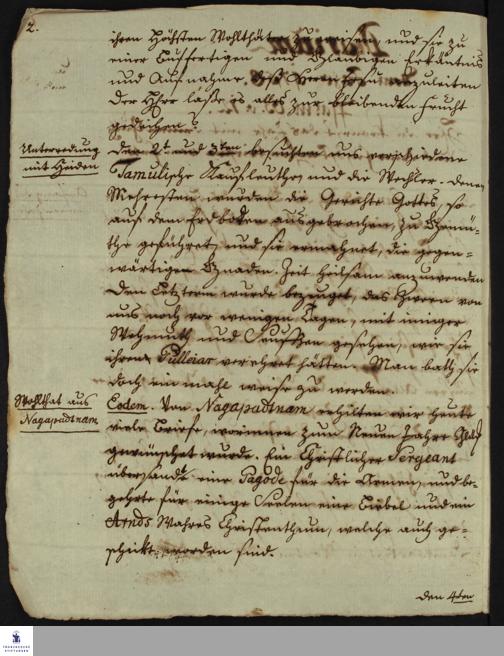 2.
ihren höchsten Wohlthäter zu preisen, und sie zu
einer bußfertigen und gläubigen Erkäntnis
und Aufnahme des Herrn Jesu anzuleiten
Der Herr laße es alles zur bleibenden Frucht
gedeihen!
Unterredung
mit Heiden
den 2t und 3ten besuchten uns verschiedene
Tamulische Kaufleuthe und die Wechsler. denen
Mehresten wurden die Gerichte Gottes, so
auf dem Erdboden ausgebrochen, zu Gemü-
the geführet, und sie ermahnet, die gegen-
wärtigen Gnaden-Zeit heilsam anzuwenden
Den letztern wurde bezeuget, daß Ihrer von
uns noch vor wenigen Tagen, mit inniger
Wehmuth und Seufzen gesehen, wie sie
ihren Pulleiar verehret hätten. Man bath sie
doch einmahl weise zu werden.
Wohlthat aus
Nagapadtnam
Eodem. Von Nagapadtnam erhilten wir heute
viele Briefe, worinnen zum Neuen Jahre Glück
gewünschet wurde. Ein Christlicher Sergeant
übersandte eine Pagode für die Armen, und be-
gehrte für einige Seelen eine Bibel und ein
Arnds Wahres Christenthum, welche auch ge-
schickt worden sind.
den 4ten
FRANCKESCHE
STIFTUNGEN